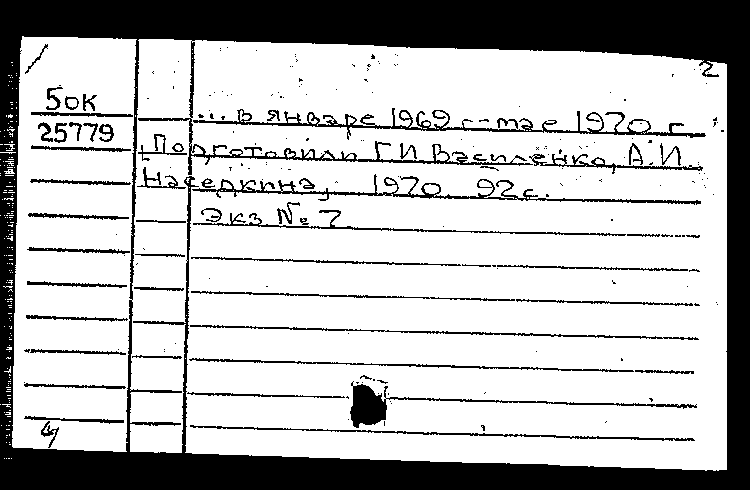 2
50к
... в январе 1969 г.-мае 1970 г.
25779
Подготовили Г.И. Василенко, А.И.
Наседкина, 1970 92 с.
Экз № 7